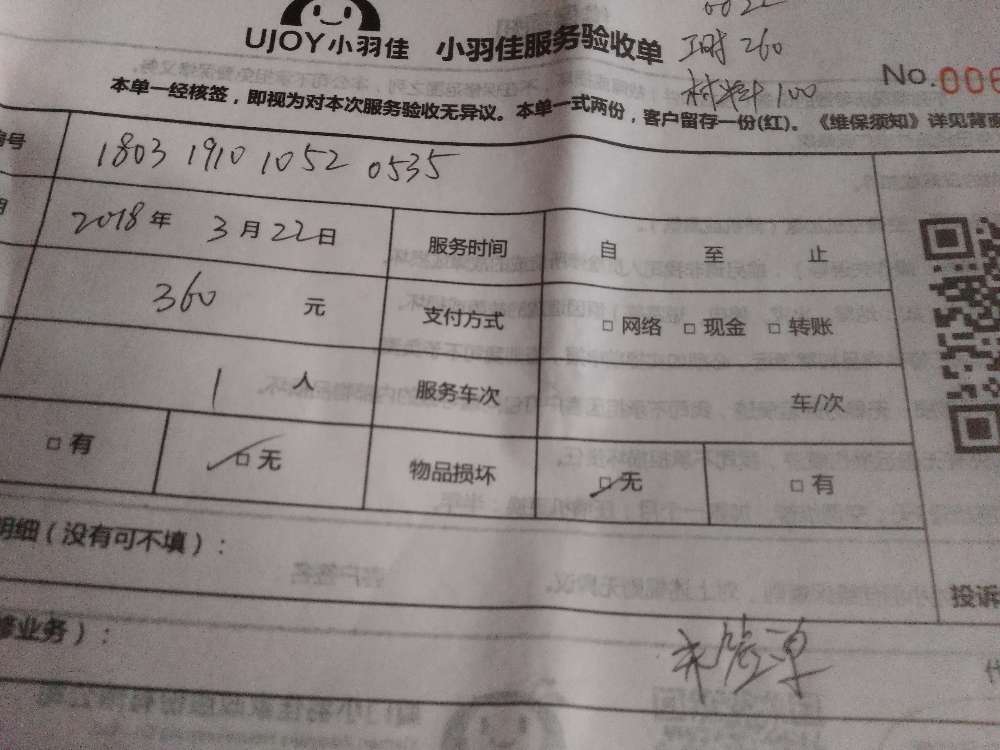 UJOY小羽佳 小羽佳服务验收单
工时 260
材料 100
No.006
本单一经核签，即视为对本次服务验收无异议。本单一式两份，客户留存一份(红)。《维保须知》详见背面
1803 1910 1052 0535
2018年 3月22日 服务时间 自 至 止
360 元 支付方式 □网络 □现金 □转账
1 人 服务车次 车/次
□有 □无 物品损坏 □无 □有
明细（没有可不填）：
投诉
修业务）：